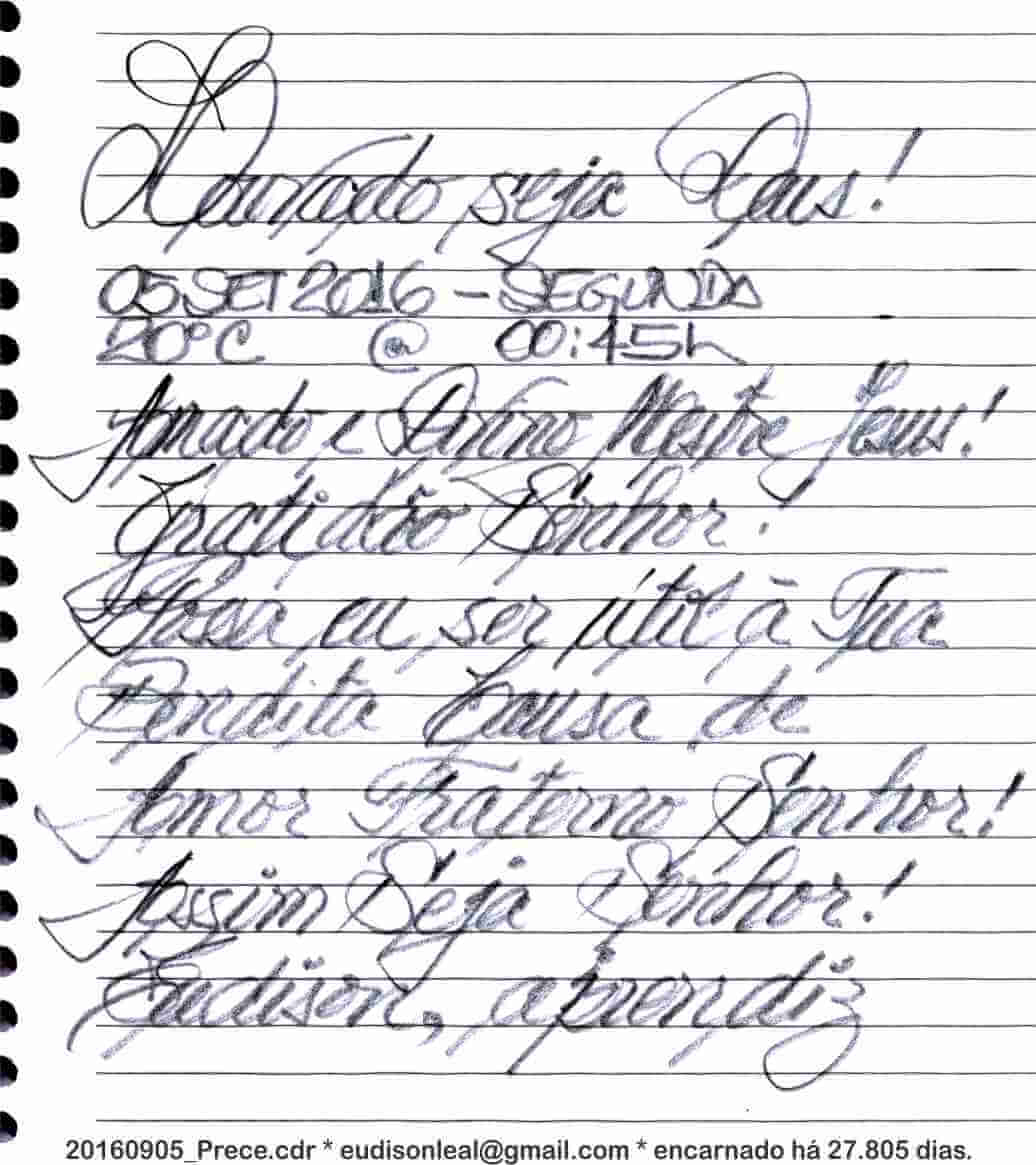 Louvado seja Deus!
05 SET 2016 - SEGUNDA
20°C @ 00:45h
Amado e Divino Mestre Jesus!
Gratidão Senhor!
Possa eu ser útil à Tua
Bendita Causa de
Amor Fraterno Senhor!
Assim Seja Senhor!
Eudison, aprendiz
20160905_Prece.cdr * eudisonleal@gmail.com * encarnado há 27.805 dias.